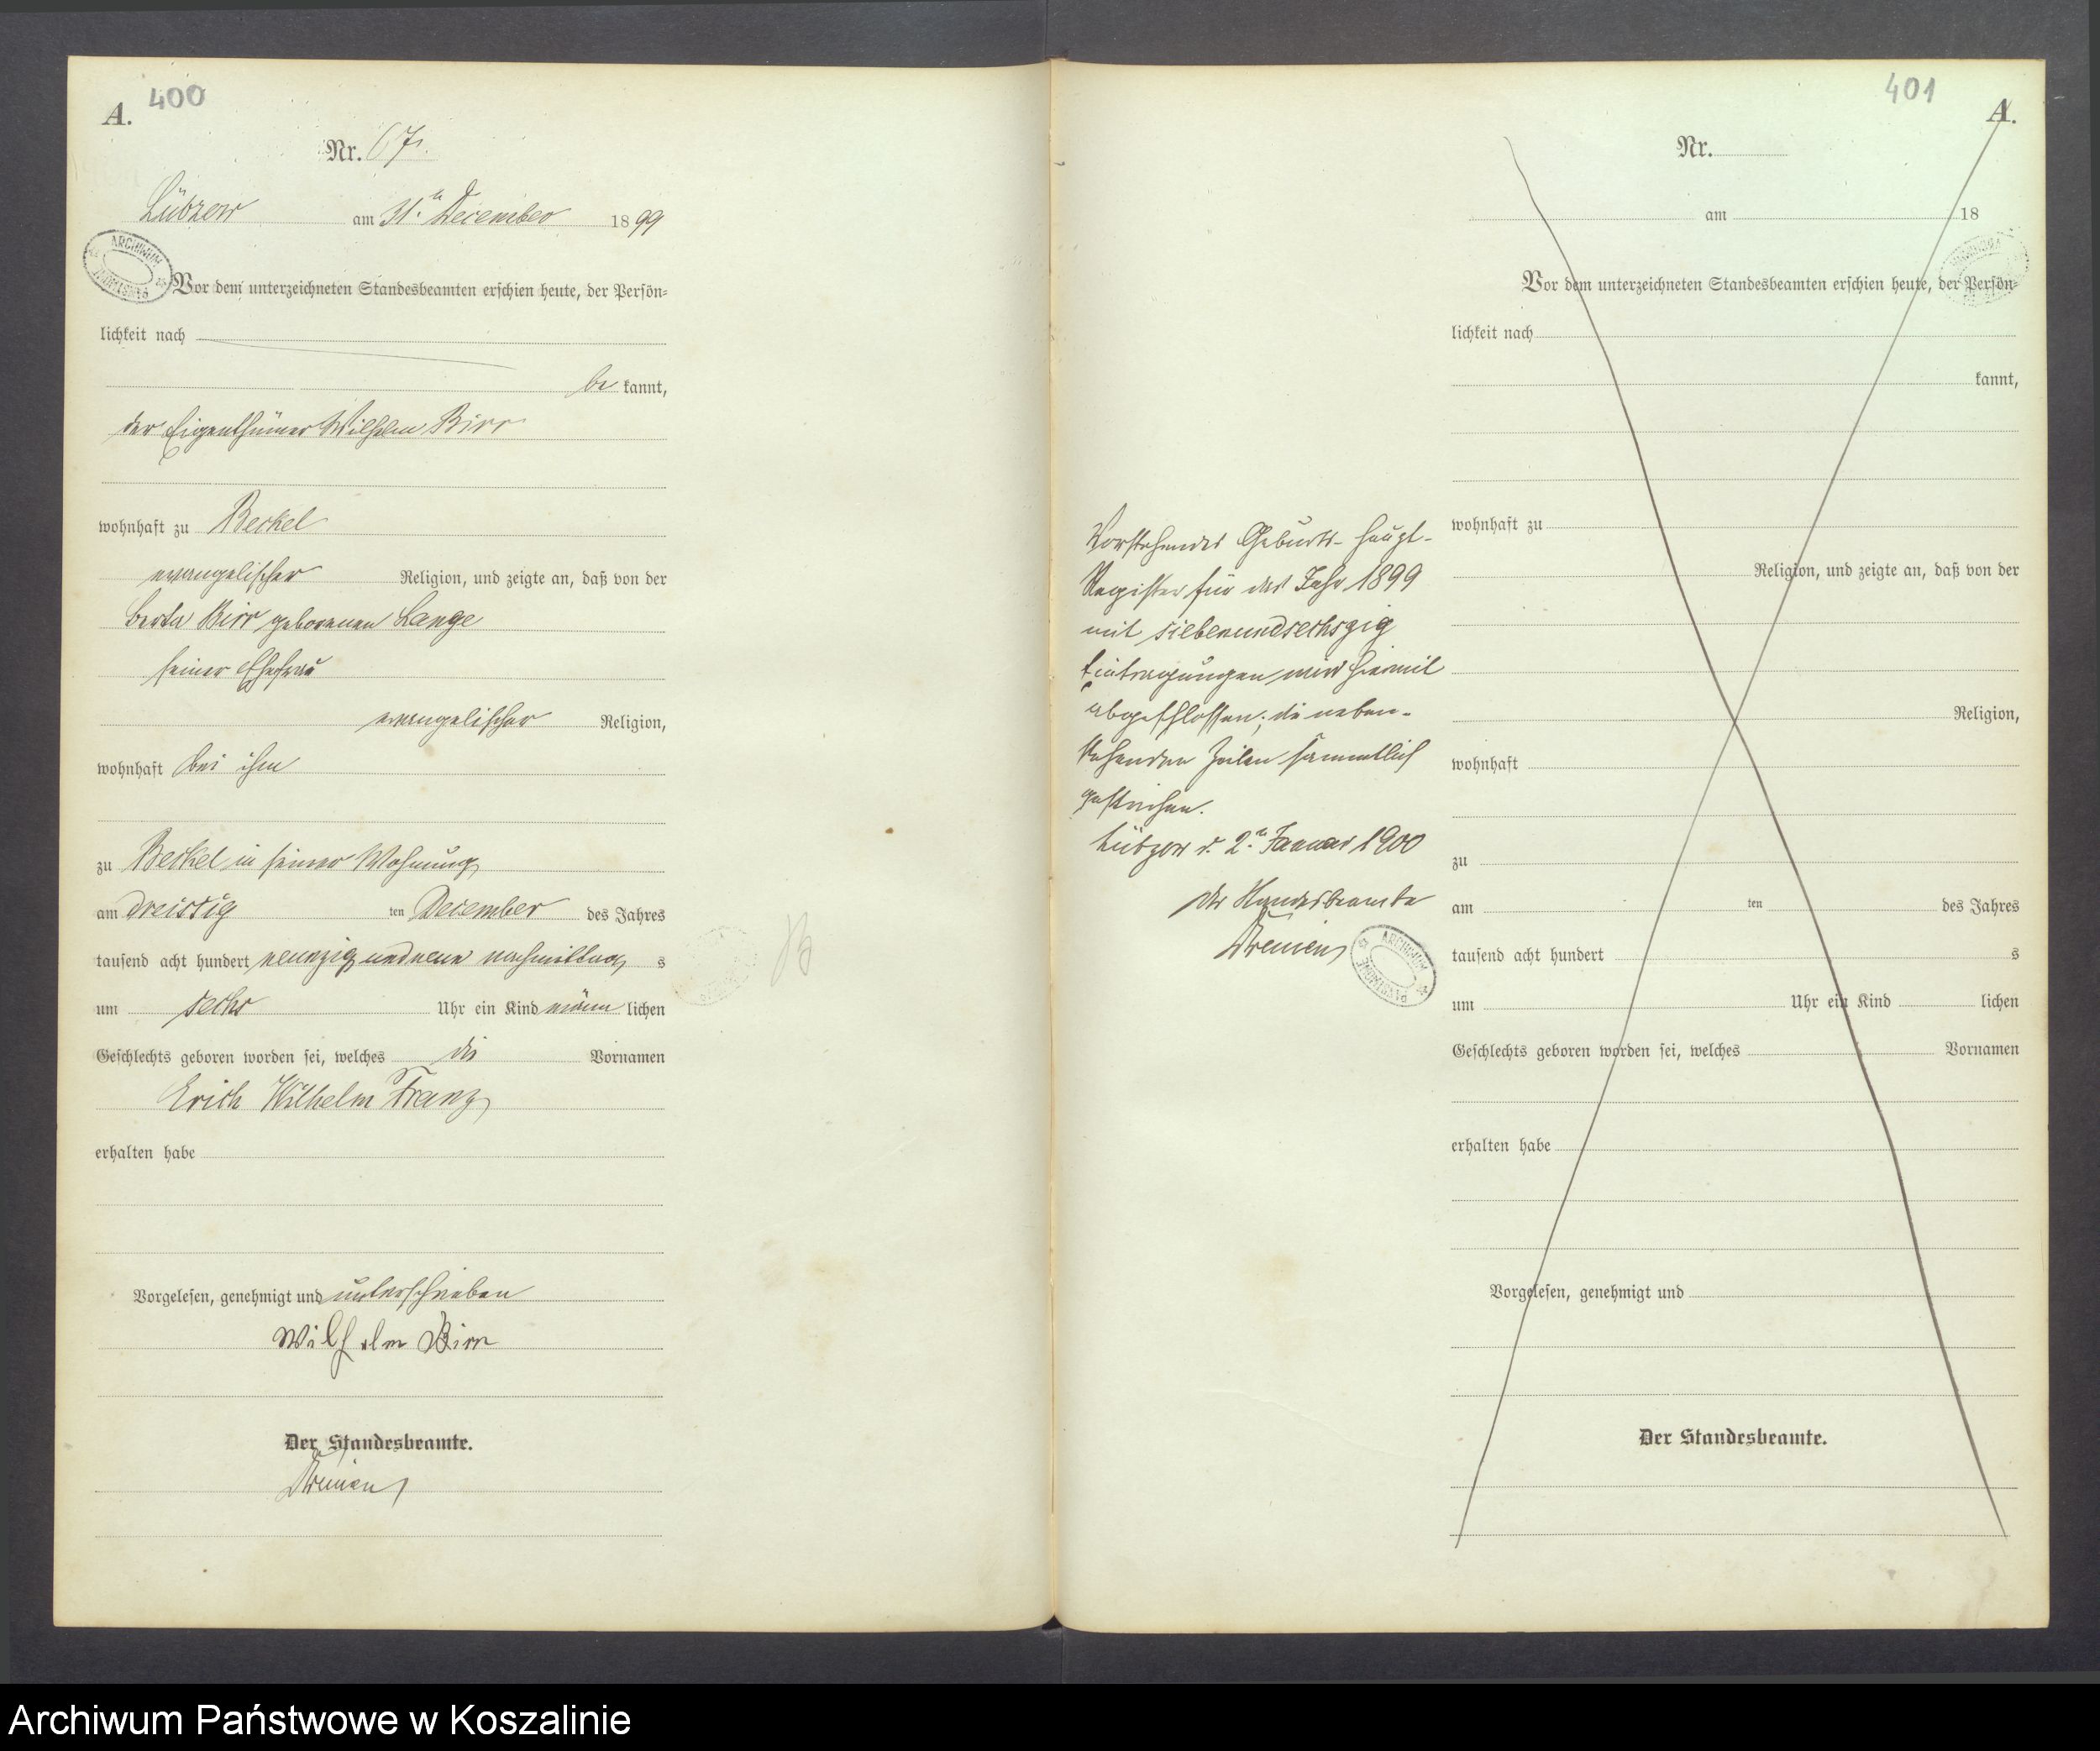 400
A.
Nr. 67.
Lübzow am 31.ten December 1899
ARCHIWUM PAŃSTWOWE
Vor dem unterzeichneten Standesbeamten erschien heute, der Persön-
lichkeit nach
be kannt,
der Eigenthümer Wilhelm Birr
wohnhaft zu Beckel
evangelischer Religion, und zeigte an, daß von der
Berta Birr geborenen Lange
seiner Ehefrau
evangelischer Religion,
wohnhaft bei ihm
zu Beckel in seiner Wohnung
am dreissig ten December des Jahres
tausend acht hundert neunzig und neun nachmittag s
um sechs Uhr ein Kind männ lichen
Geschlechts geboren worden sei, welches die Vornamen
Erich Wilhelm Franz
erhalten habe
Vorgelesen, genehmigt und unterschrieben
Wilhelm Birr
Der Standesbeamte.
401
A.
Nr.
am 18
Vor dem unterzeichneten Standesbeamten erschien heute, der Persön-
lichkeit nach
kannt,
wohnhaft zu
Religion, und zeigte an, daß von der
Religion,
wohnhaft
zu
am ten des Jahres
tausend acht hundert s
um Uhr ein Kind lichen
Geschlechts geboren worden sei, welches Vornamen
erhalten habe
Vorgelesen, genehmigt und
Der Standesbeamte.
Vorstehendes Geburts-Haupt-
Register für das Jahr 1899
mit siebenundsechszig
Eintragungen wird hiermit
abgeschlossen; die neben-
stehenden Zeilen sämmtlich
gestrichen.
Lübzow d. 2.ten Januar 1900
Der Standesbeamte
ARCHIWUM PAŃSTWOWE
Archiwum Państwowe w Koszalinie